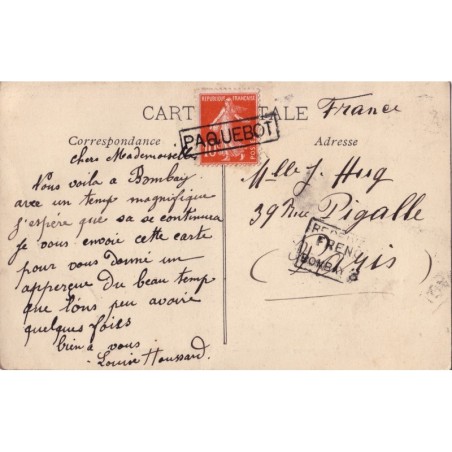 CARTE POSTALE
France
REPUBLIQUE FRANÇAISE
PAQUEBOT
Correspondance
Adresse
chere Mademoiselle
Nous voila a Bombay
avec un temp magnifique
j'espére que sa se continuera
Je vous envoie cette carte
pour vous donné un
apperçue du beau temp
que l'ons peu avoire
quelques foirs
bien a vous
Louise Houssard.
Mlle J. Hug
39 Rue Pigalle
Paris
FREN
BOMBAY